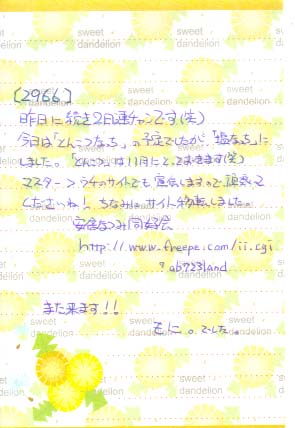 sweet dandelion
[2966]
昨日に続き2日連チャンです(笑)
今日は「とんこつなっち」の予定でしたが、「塩なっち」に
しました。「とんこつ」は11月にとっておきます(笑)
マスター> うちのサイトでも宣伝しますので頑張って
くださいね! ちなみにサイト移転しました。
安倍なつみ同好会
http://www.freepe.com/ii.cgi
?ab723land
また来ます!!
でした。
sweet dandelion